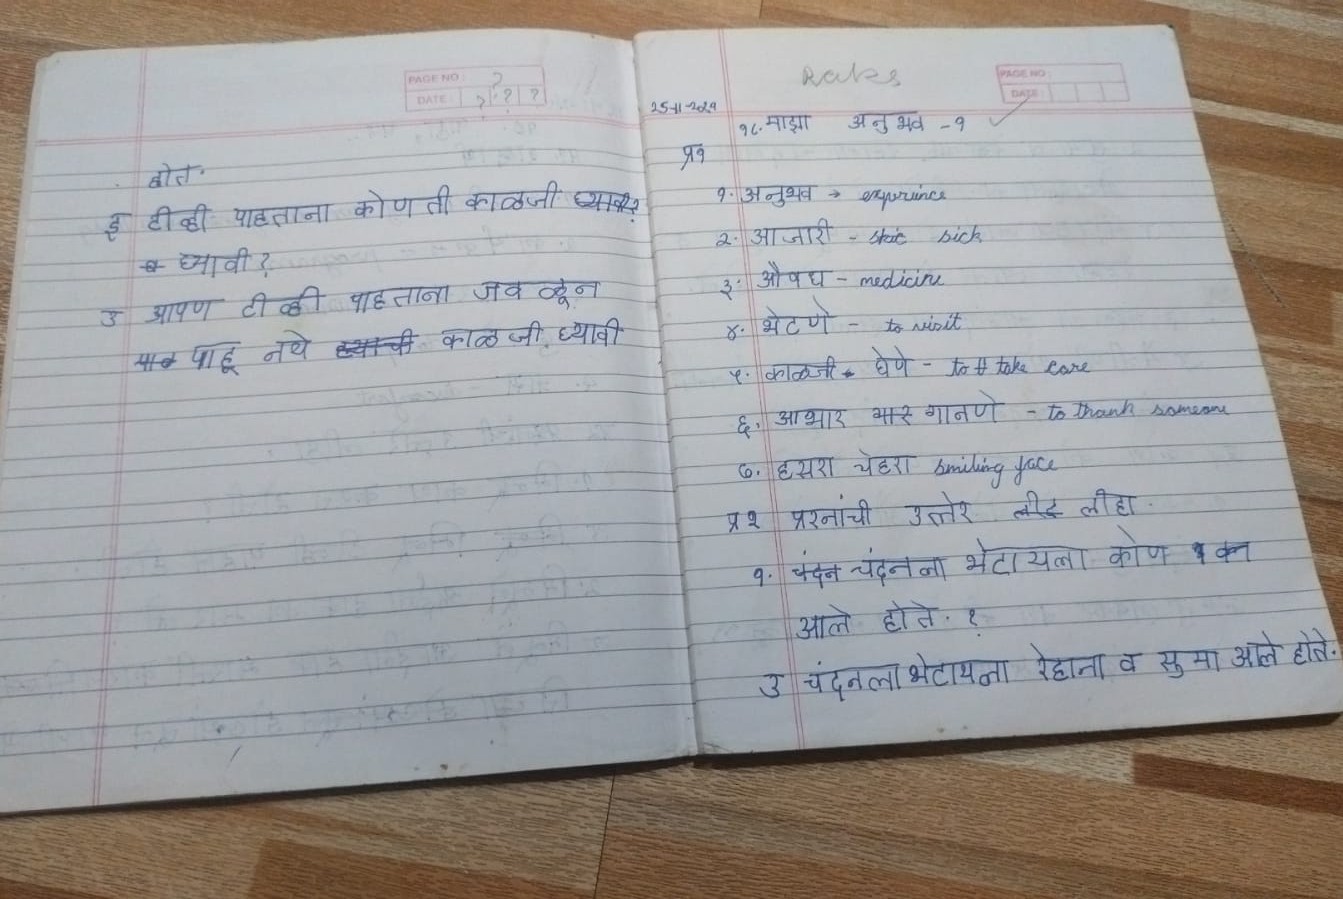 PAGE NO: ?
DATE: ? ? ?
होते.
इ टीव्ही पाहताना कोणती काळजी
घ्यावी?
उ आपण टीव्ही पाहताना जवळून
पाहू नये काळजी घ्यावी
PAGE NO:
DATE:
25-11-2024
१८. माझा अनुभव - १
प्र१
१. अनुभव → exprince
२. आजारी - skic sick
३. औषध - medicine
४. भेटणे - to visit
५. काळजी घेणे - to take care
६. आभार मानणे - to thank someone
७. हसरा चेहरा smiling face
प्र२ प्रश्नांची उत्तेर लीहा.
१. चंदन चंदनला भेटायला कोण
आले होते. ?
उ चंदनला भेटायला रेहाना व सुमा आले होते.